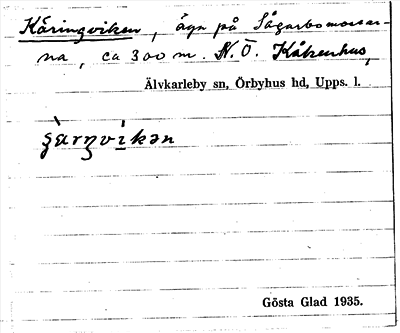 Käringviken, äga på Sågarbomossar-
na, ca 300 m. N.Ö. Kåkenhus,
Älvkarleby sn, Örbyhus hd, Upps. l.
Gösta Glad 1935.